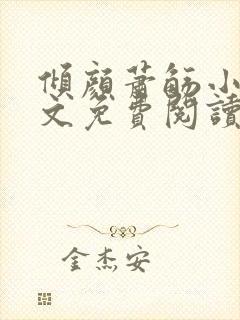 傾顏蕭觞小
文免費閱讀
金杰安